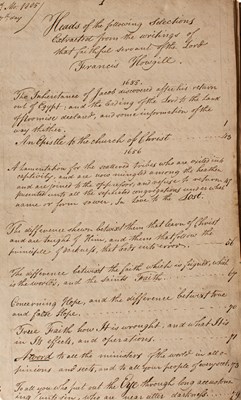 Heads of the following Selections
Extracted from the writings of
that faithful servant of the Lord
Francis Howgill
1655
The Inheritance of Jacob discovered after his return
out of Egypt; and the leading of the Lord to the land
of promise declared, and some information of the
way thither. 1
An Epistle to the church of Christ
1656
A lamentation for the scattered tribes who are exiled into
captivity, and are now mingled among the heathen
and are joined to the oppressor, and refuse to return
under what
name or form soever, In love to the Lost.
The difference shewn between them that learn of Christ
and are taught of Him, and them that follow the
principle of
The difference between the faith which is feigned, which
is the world's, and the Saints Faith
Concerning Hope, and the difference between true
and false Hope.
True Faith how It is wrought, and what It is
in Its effects, and operations.
A Word to all the ministers of the world in all
and sects, and to all your people of
To all you who put out the Eye through long accustom
are near after darkness